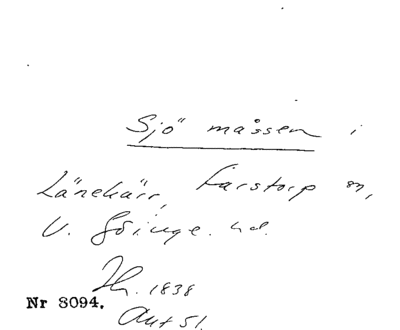 Sjö måssen i
Länekärr, Farstorp sn,
V. Göinge. hd.
1838
Nr 8094.
Akt 51.